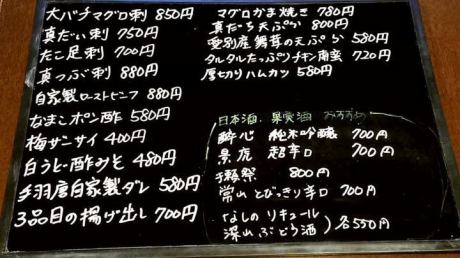 大バチマグロ刺 850円
真だい刺 750円
たこ足刺 700円
真つぶ刺 880円
自家製ローストビーフ 880円
なまこポン酢 580円
梅ザーサイ 400円
白うど酢みそ 480円
手羽唐自家製ダレ 580円
3品目の揚げ出し 700円
マグロかま焼き 780円
真だち天ぷら 800円
愛別産舞茸の天ぷら 580円
タルタルたっぷりチキン南蛮 720円
厚切りハムカツ 580円
日本酒、果実酒 おすすめ
酔心 純米吟醸 700円
景虎 超辛口 700円
獺祭 800円
常山 とびっきり辛口 700円
なしの リキュール
深山ぶどう酒
各550円